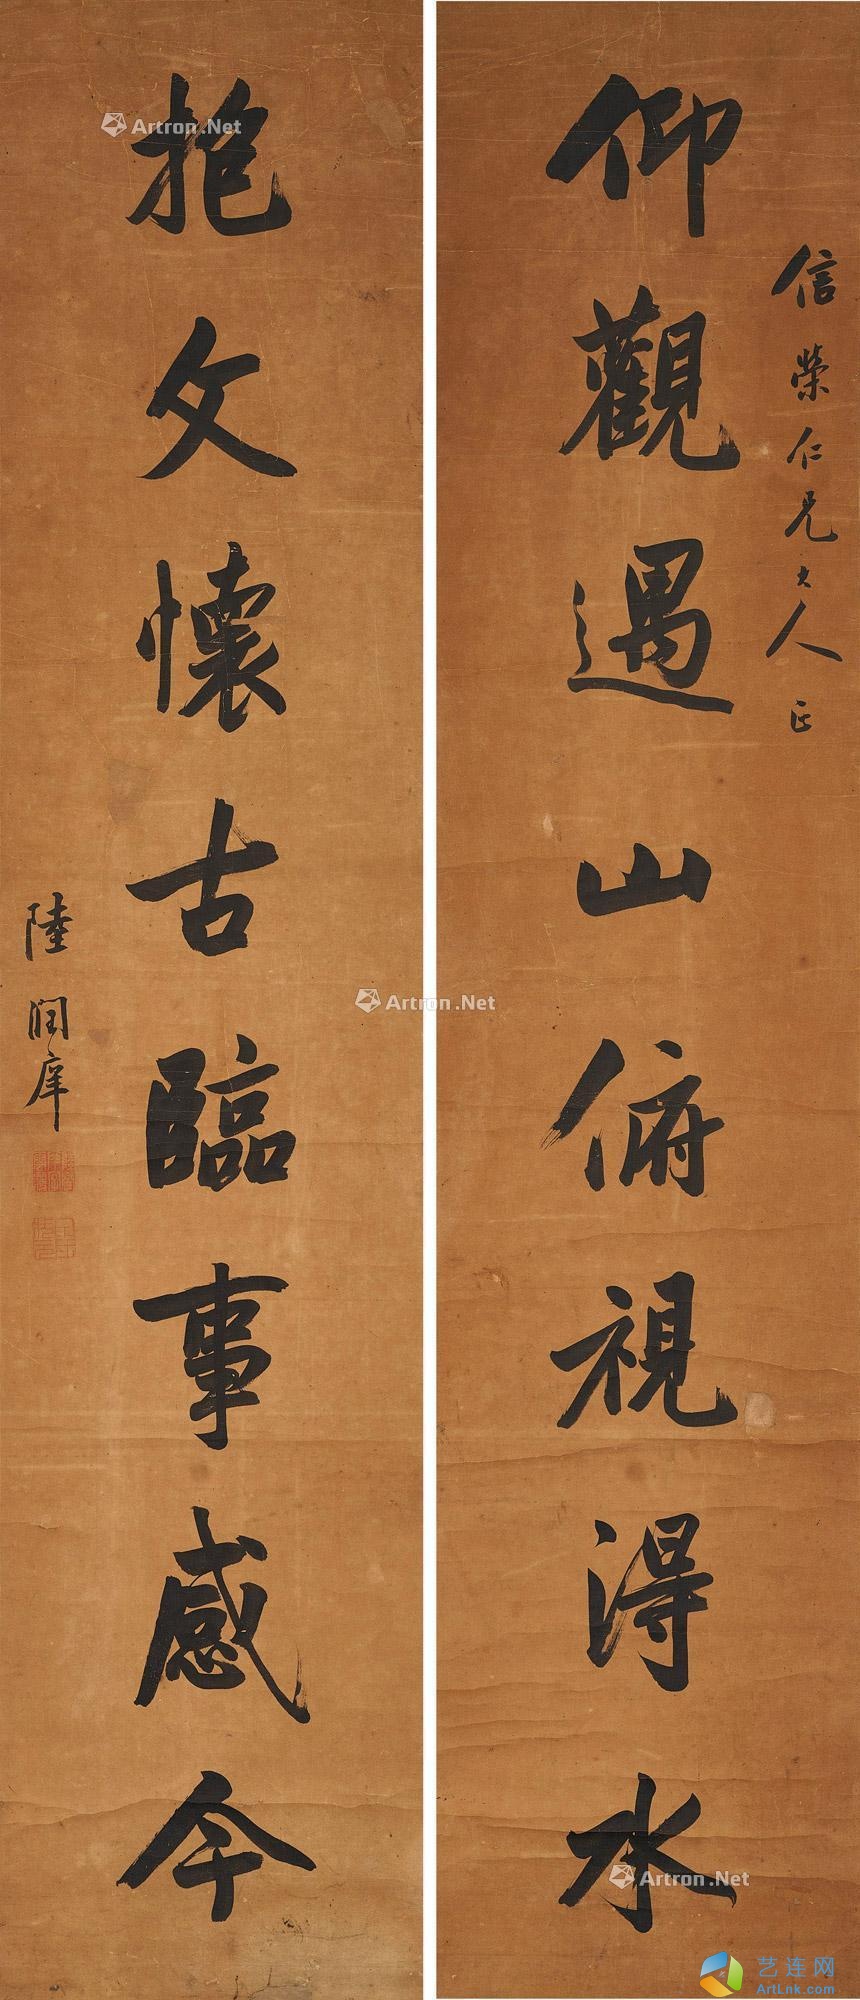 信榮仁兄大人正
仰觀遇山俯視得水
抱文懷古臨事感今
陸潤庠
Artron.Net
Artron.Net
Artron.Net
艺连网
ArtLink.com